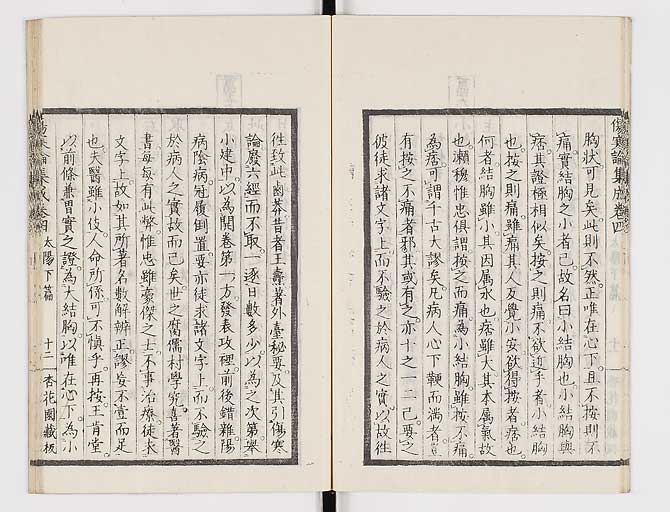 傷寒論集成卷四
胸狀可見矣此則不然正唯在心下且不按則不
痛實結胸之小者已故名曰小結胸也小結胸與
痞其證極相似矣按之則痛不欲近手者小結胸
也按之則痛雖痛其人反覺小安欲得按者痞也
何者結胸雖小其因属水也痞雖大其本属氣故
也瀨穆惟忠俱謂按之而痛為小結胸雖按不痛
為痞可謂千古大謬矣凡病人心下鞕而満者
有按之不痛者邪其或有之亦十之一二已要之
彼徒求諸文字上而不驗之於病人之實以故往
往致此鹵莽昔者王燾著外臺秘要及其引傷寒
論廢六經而不取一逐日數多少以為之次第舉
小建中以為開卷第一方發表攻裡前後錯雜陽
病陰病冠履倒置要亦徒求諸文字上而不驗之
於病人之實故而已矣世之腐儒村學究喜著醫
書每每有此弊惟忠雖豪傑之士不事治療徒求
文字上故如其所著名數解辨正謬妄不壹而足
也夫醫雖小伎人命所係可不慎乎再按王肯堂
以前條兼胃實之證為大結胸以唯在心下為小
傷寒論集成卷四 太陽下篇 十二 杏花園藏板